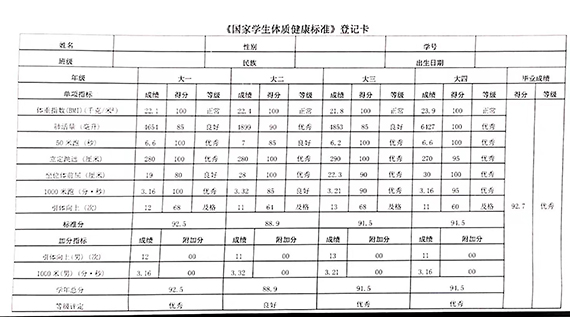 《国家学生体质健康标准》登记卡
姓名 性别 学号
班级 民族 出生日期
年级 大一 大二 大三 大四 毕业成绩
单项指标 成绩 得分 等级 成绩 得分 等级 成绩 得分 等级 成绩 得分 等级 得分 等级
体重指数(BMI)(千克/米²) 22.1 100 正常 22.4 100 正常 21.8 100 正常 23.9 100 正常
肺活量(毫升) 4654 85 良好 4899 90 优秀 4853 85 良好 6427 100 优秀
50米跑(秒) 6.6 100 优秀 7 85 良好 6.2 100 优秀 6.6 100 优秀
立定跳远(厘米) 280 100 优秀 280 100 优秀 290 100 优秀 270 95 优秀
坐位体前屈(厘米) 19 80 良好 28 100 优秀 22.3 90 优秀 30 100 优秀
1000米跑(分·秒) 3.16 100 优秀 3.32 85 良好 3.21 90 优秀 3.16 95 优秀
引体向上(次) 12 68 及格 11 64 及格 13 68 及格 11 60 及格
标准分 92.5 88.9 91.5 94.5 92.7 优秀
加分指标 成绩 附加分 成绩 附加分 成绩 附加分 成绩 附加分
引体向上(男)(次) 12 00 11 00 13 00 11 00
1000米(男)(分·秒) 3.16 00 3.32 00 3.21 00 3.16 00
学年总分 92.5 88.9 91.5 94.5
等级评定 优秀 良好 优秀 优秀